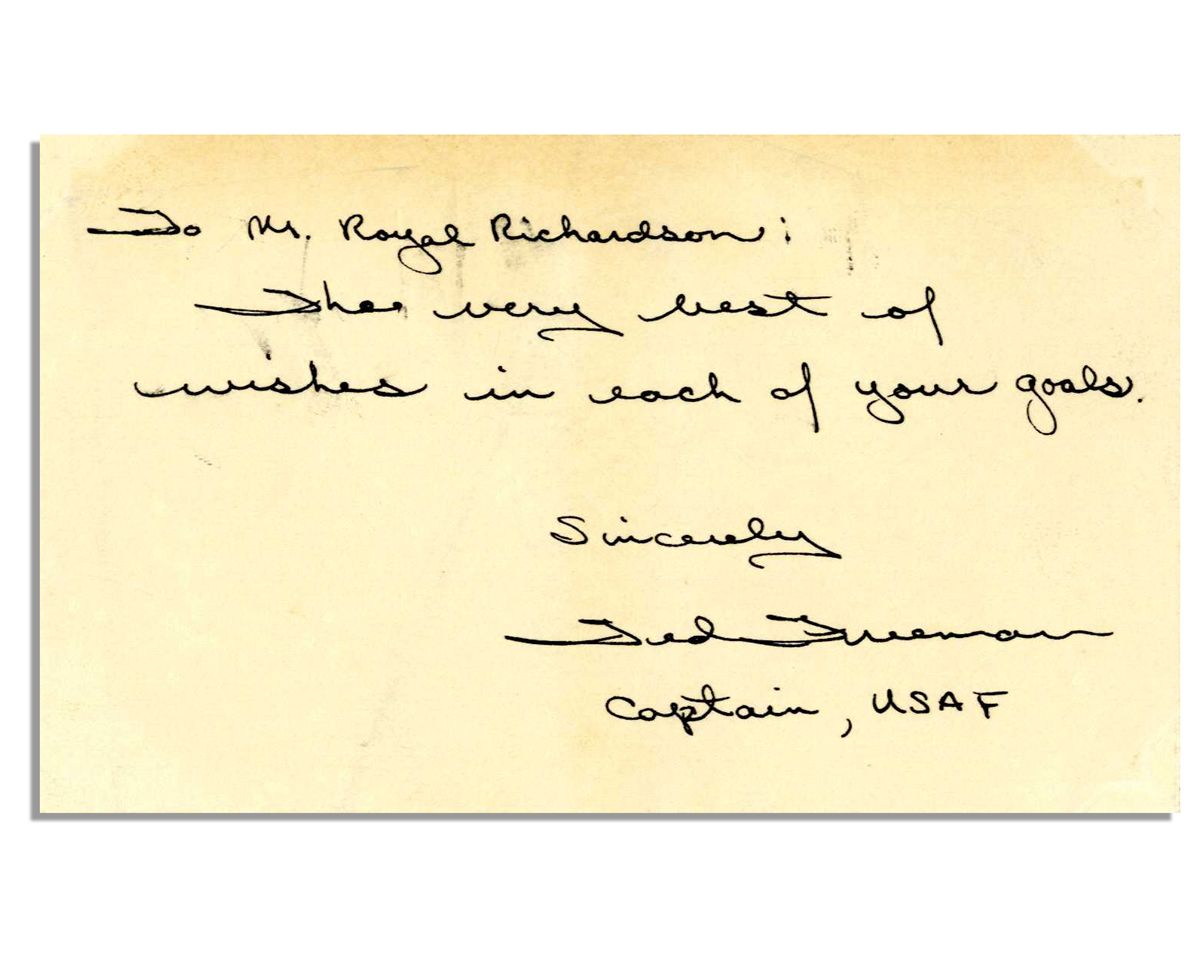 To Mr. Royal Richardson:
The very best of
wishes in each of your goals.
Sincerely
Ted Freeman
Captain, USAF